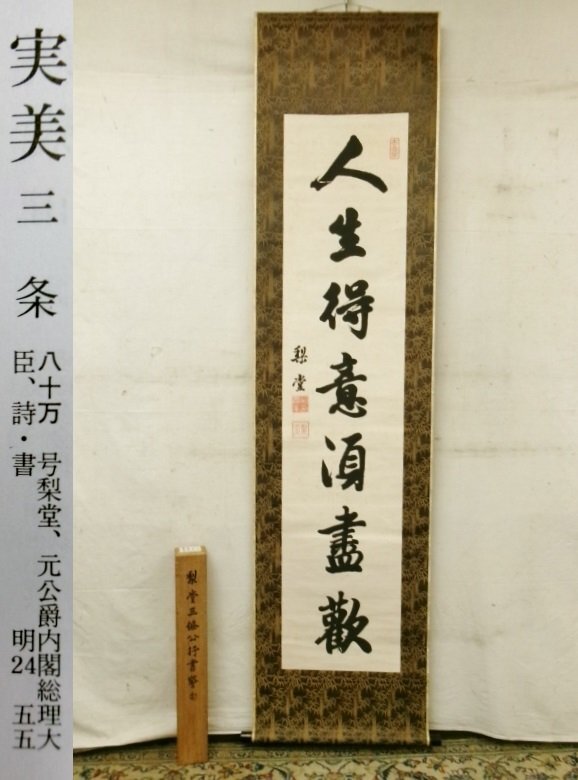 実美 三条
八十万 号梨堂、元公爵内閣総理大
臣、詩・書 明24 五五
人生得意須盡歡
梨堂
梨堂三條公行書